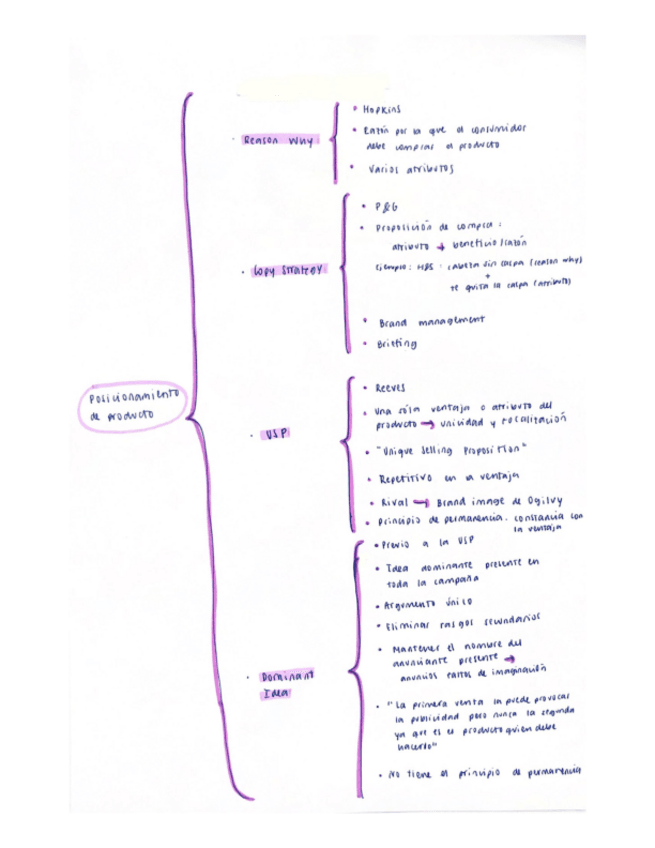 Posicionamiento
de producto
· Reason Why
• Hopkins
• Razón por la que el consumidor
debe comprar el producto
• Varios atributos
· Copy Strategy
• P&G
• Proposición de compra:
atributo → beneficio/razón
ejemplo: H&S: cabeza sin caspa (reason why)
+
te quita la caspa (atributo)
• Brand management
• Briefing
· USP
• Reeves
• Una sóla ventaja o atributo del
producto → unicidad y focalización
• "Unique Selling Proposition"
• Repetitivo en la ventaja
• Rival → Brand image de Ogilvy
• Principio de permanencia. constancia con
la ventaja
· Dominant
Idea
• Previo a la USP
• Idea dominante presente en
toda la campaña
• Argumento único
• Eliminar rasgos secundarios
• Mantener el nombre del
anunciante presente →
anuncios faltos de imaginación
• "La primera venta la puede provocar
la publicidad pero nunca la segunda
ya que es el producto quien debe
hacerlo"
• No tiene el principio de permanencia